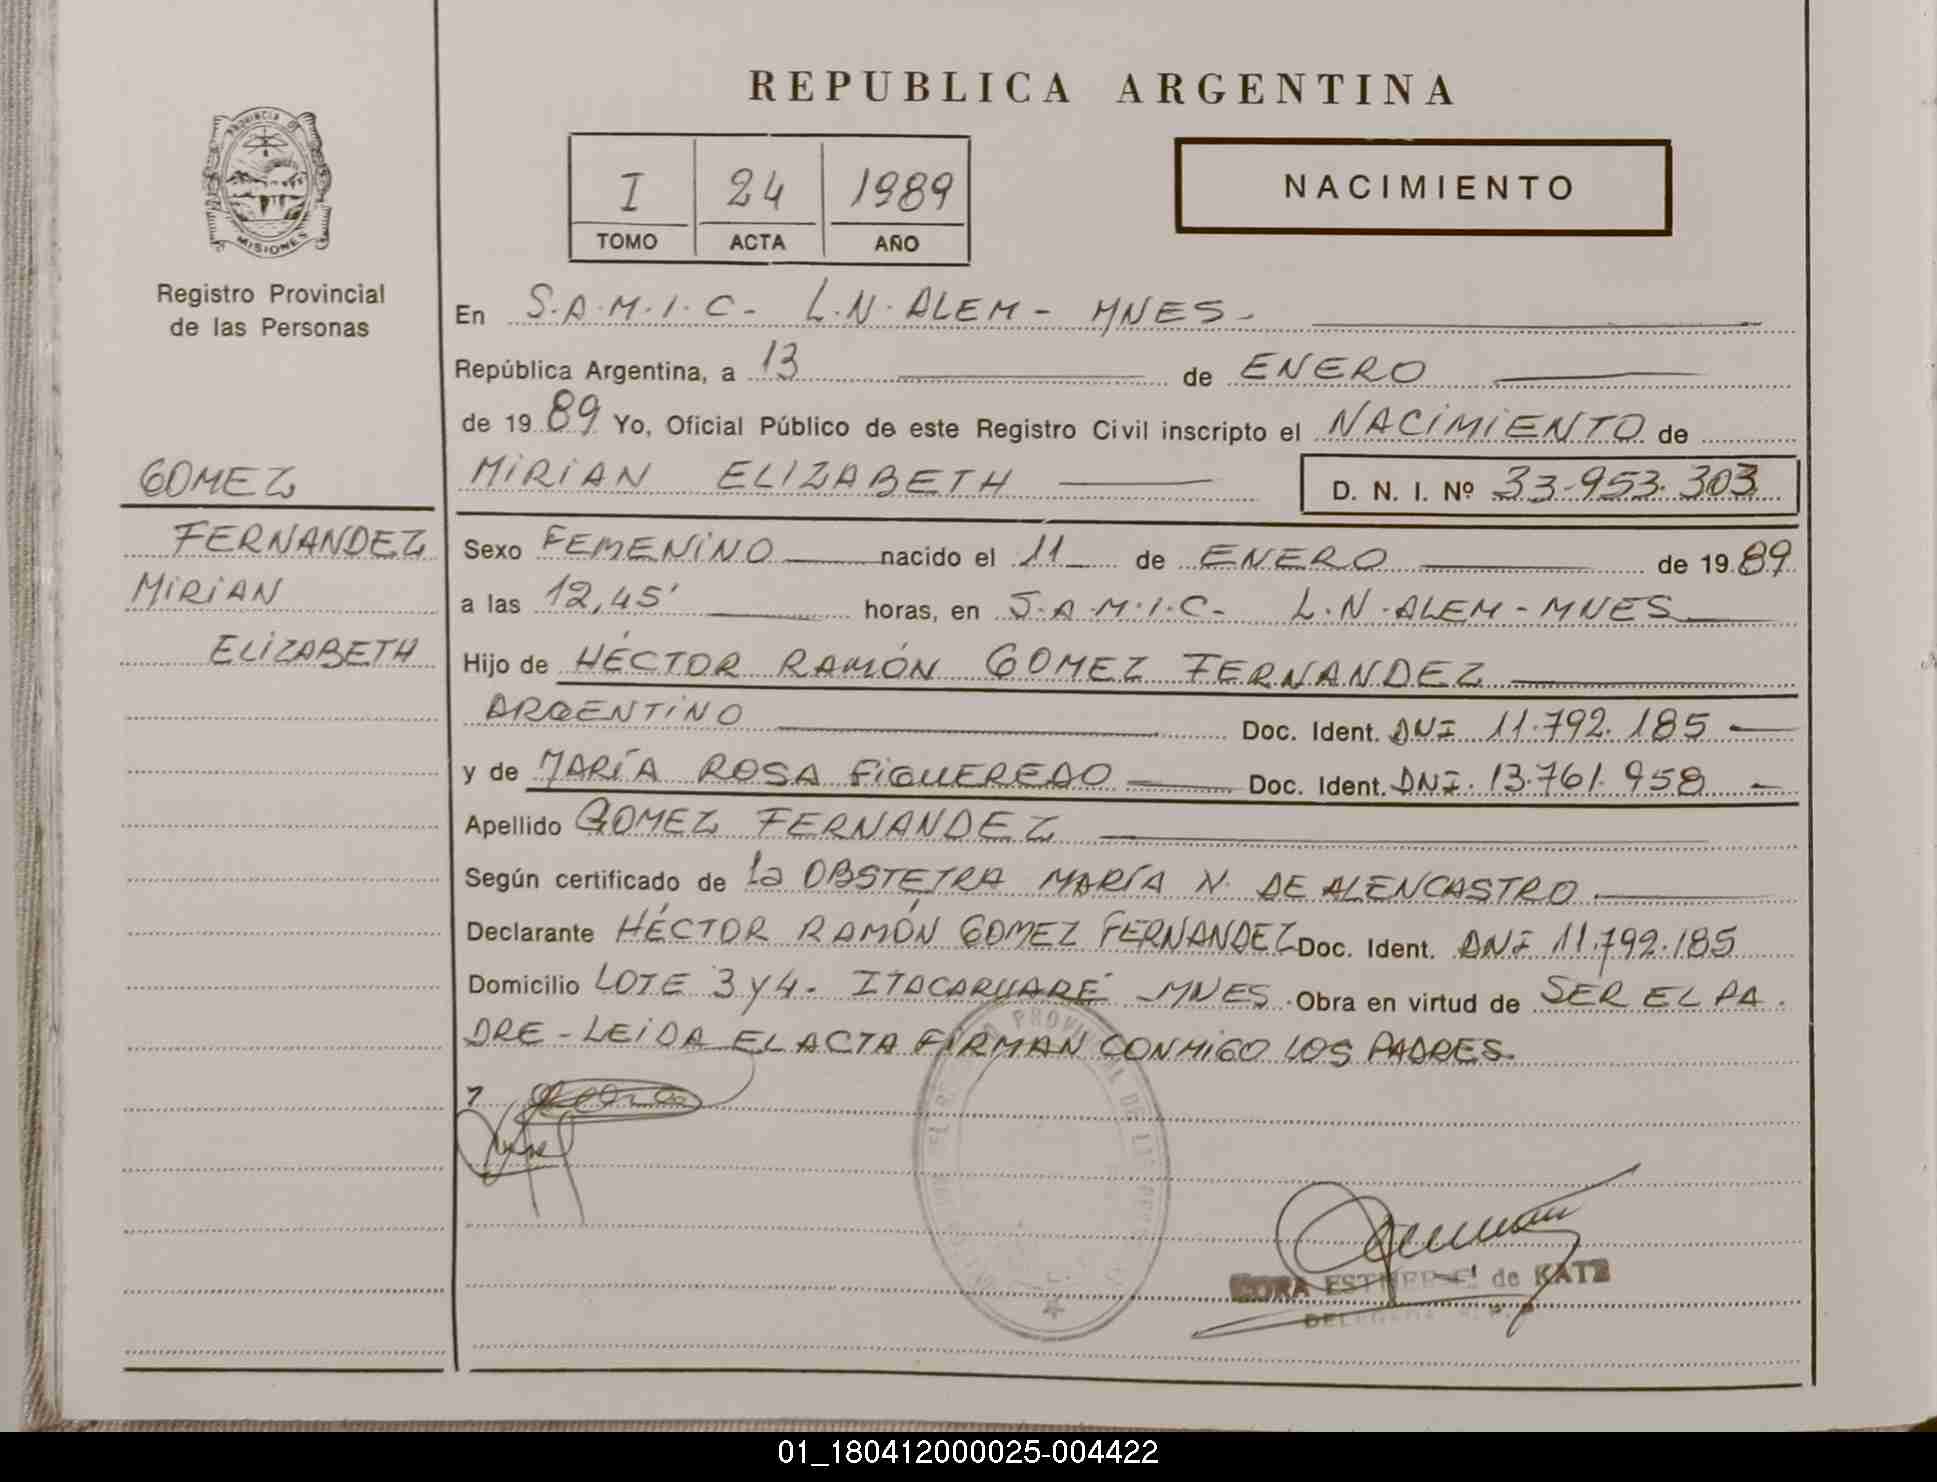 REPUBLICA ARGENTINA
PROVINCIA DE
MISIONES
Registro Provincial
de las Personas
I 24 1989
TOMO ACTA AÑO
NACIMIENTO
En S.A.M.I.C- L.N.ALEM- MNES-
República Argentina, a 13 de ENERO
de 1989 Yo, Oficial Público de este Registro Civil inscripto el NACIMIENTO de
MIRIAN ELIZABETH D. N. I. Nº 33.953.303
GOMEZ
FERNANDEZ
MIRIAN
ELIZABETH
Sexo FEMENINO nacido el 11 de ENERO de 1989
a las 12,45' horas, en S.A.M.I.C- L.N.ALEM-MNES
Hijo de HÉCTOR RAMÓN GOMEZ FERNANDEZ
ARGENTINO Doc. Ident. DNI 11.792.185
y de MARÍA ROSA FIGUEREDO Doc. Ident. DNI. 13.761.958
Apellido GOMEZ FERNANDEZ
Según certificado de la OBSTETRA MARÍA N. DE ALENCASTRO
Declarante HÉCTOR RAMÓN GOMEZ FERNANDEZ Doc. Ident. DNI 11.792.185
Domicilio LOTE 3 y 4. ITACARUARÉ MNES. Obra en virtud de SER EL PA.
DRE-LEIDA EL ACTA FIRMAN CONMIGO LOS PADRES.
PROVINCIAL DE LAS
ESTHER de KATZ
01_180412000025-004422